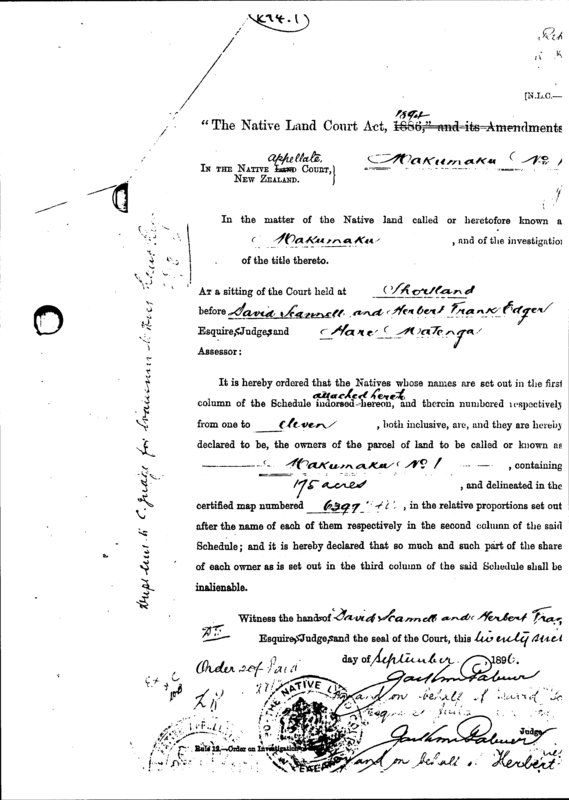 (K94.1)
[N.L.C.—
1894
"The Native Land Court Act, 1886," and its Amendments
Appellate
IN THE NATIVE LAND COURT,
NEW ZEALAND.
Makumaku No 1
In the matter of the Native land called or heretofore known a
Makumaku , and of the investigation
of the title thereto.
AT a sitting of the Court held at Shortland
before David Scannell and Herbert Frank Edger
Esquires, Judges, and Hare Matenga
Assessor:
It is hereby ordered that the Natives whose names are set out in the first
attached hereto
column of the Schedule indorsed hereon, and therein numbered respectively
from one to eleven , both inclusive, are, and they are hereby
declared to be, the owners of the parcel of land to be called or known as
Makumaku No 1 , containing
175 acres , and delineated in the
certified map numbered 6397 , in the relative proportions set out
after the name of each of them respectively in the second column of the said
Schedule; and it is hereby declared that so much and such part of the share
of each owner as is set out in the third column of the said Schedule shall be
inalienable.
Witness the hands of David Scannell and Herbert Fra
Esquires, Judges, and the seal of the Court, this
day of September 1896.
Order 20/- Paid
and on behalf of David
Judge
and on behalf of Herbert
Rule 12.—Order on Investigation
THE NATIVE